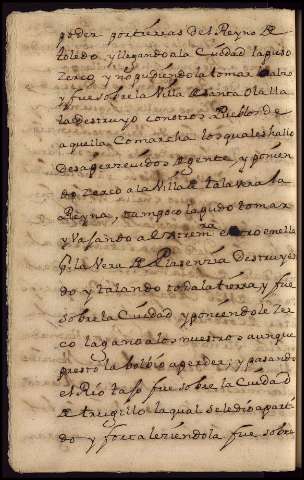 poder por tierras del Reyno de
toledo, y llegando ala Ciudad la puso
Zerco, y nó pudiendola tomar
y fue sobre la Villa de Santa Olalla
la destruyo con otros Pueblos de
aquella Comarcha los quales hallo
desaperzevidos de gente, y ponien
do Zerco ala Villa de talavera la
Reyna, tampoco la pudo tomar
y Vasando a entro en ella
la Vera de Plasenzia destruyen
do y talando toda la tierra, y fue
sobre la Ciudad y poniendole Zer
co la gano alos nuestros aunque
presto la bolbio aperder; y pasando
el Rio tajo fue sobre la Ciudad
de trugillo la qual sele dio aparti
do y fortaleziendola fue sobre